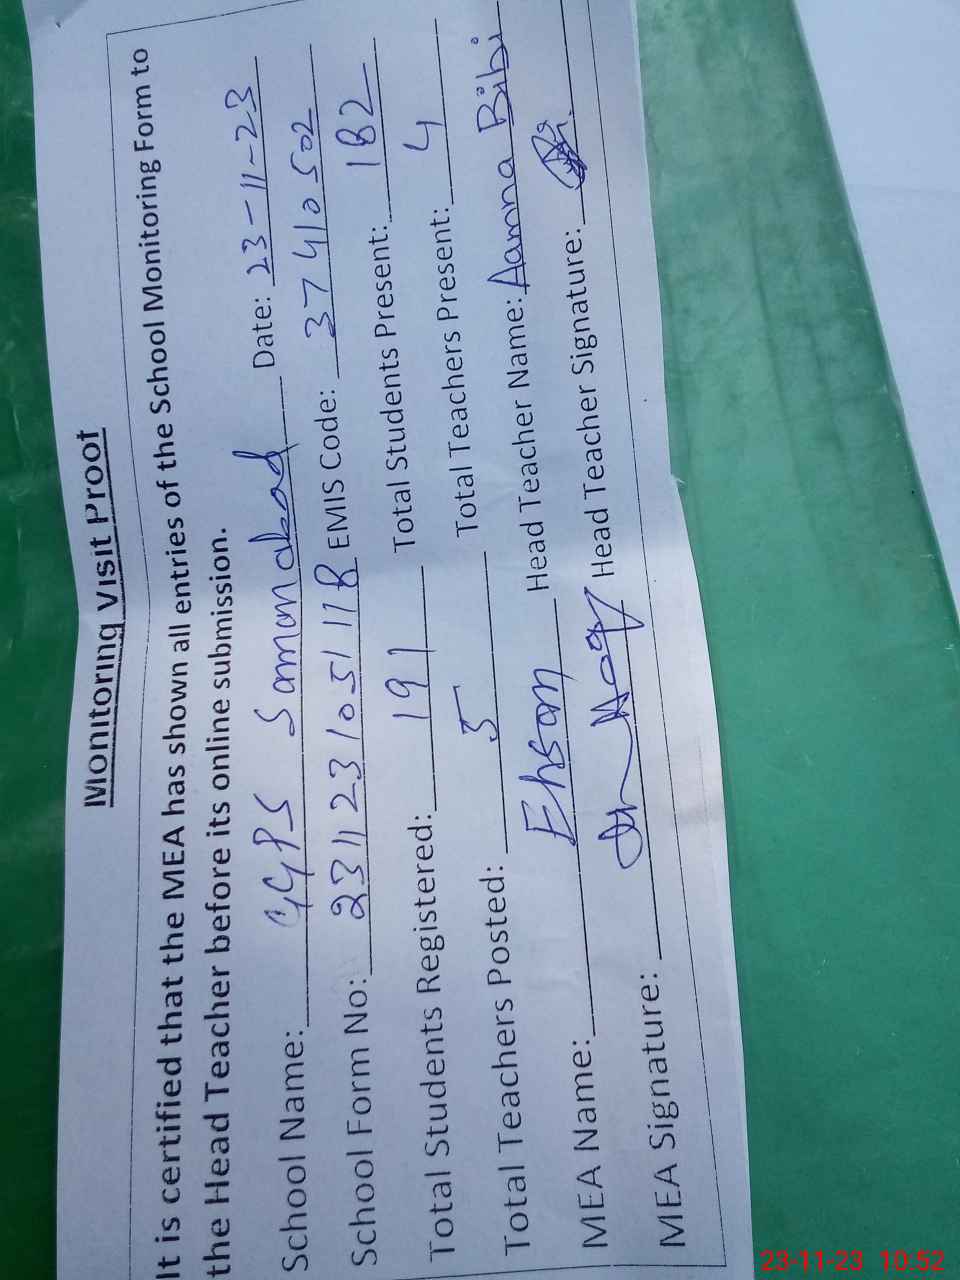 Monitoring Visit Proof
It is certified that the MEA has shown all entries of the School Monitoring Form to
the Head Teacher before its online submission.
School Name: GGPS Sammanabad Date: 23-11-23
School Form No: 2311231051118 EMIS Code: 37410502
Total Students Registered: 191 Total Students Present: 182
Total Teachers Posted: 5 Total Teachers Present: 4
MEA Name: Ehsan Head Teacher Name: Aamna Bibi
MEA Signature: Haq Head Teacher Signature:
23-11-23 10:52